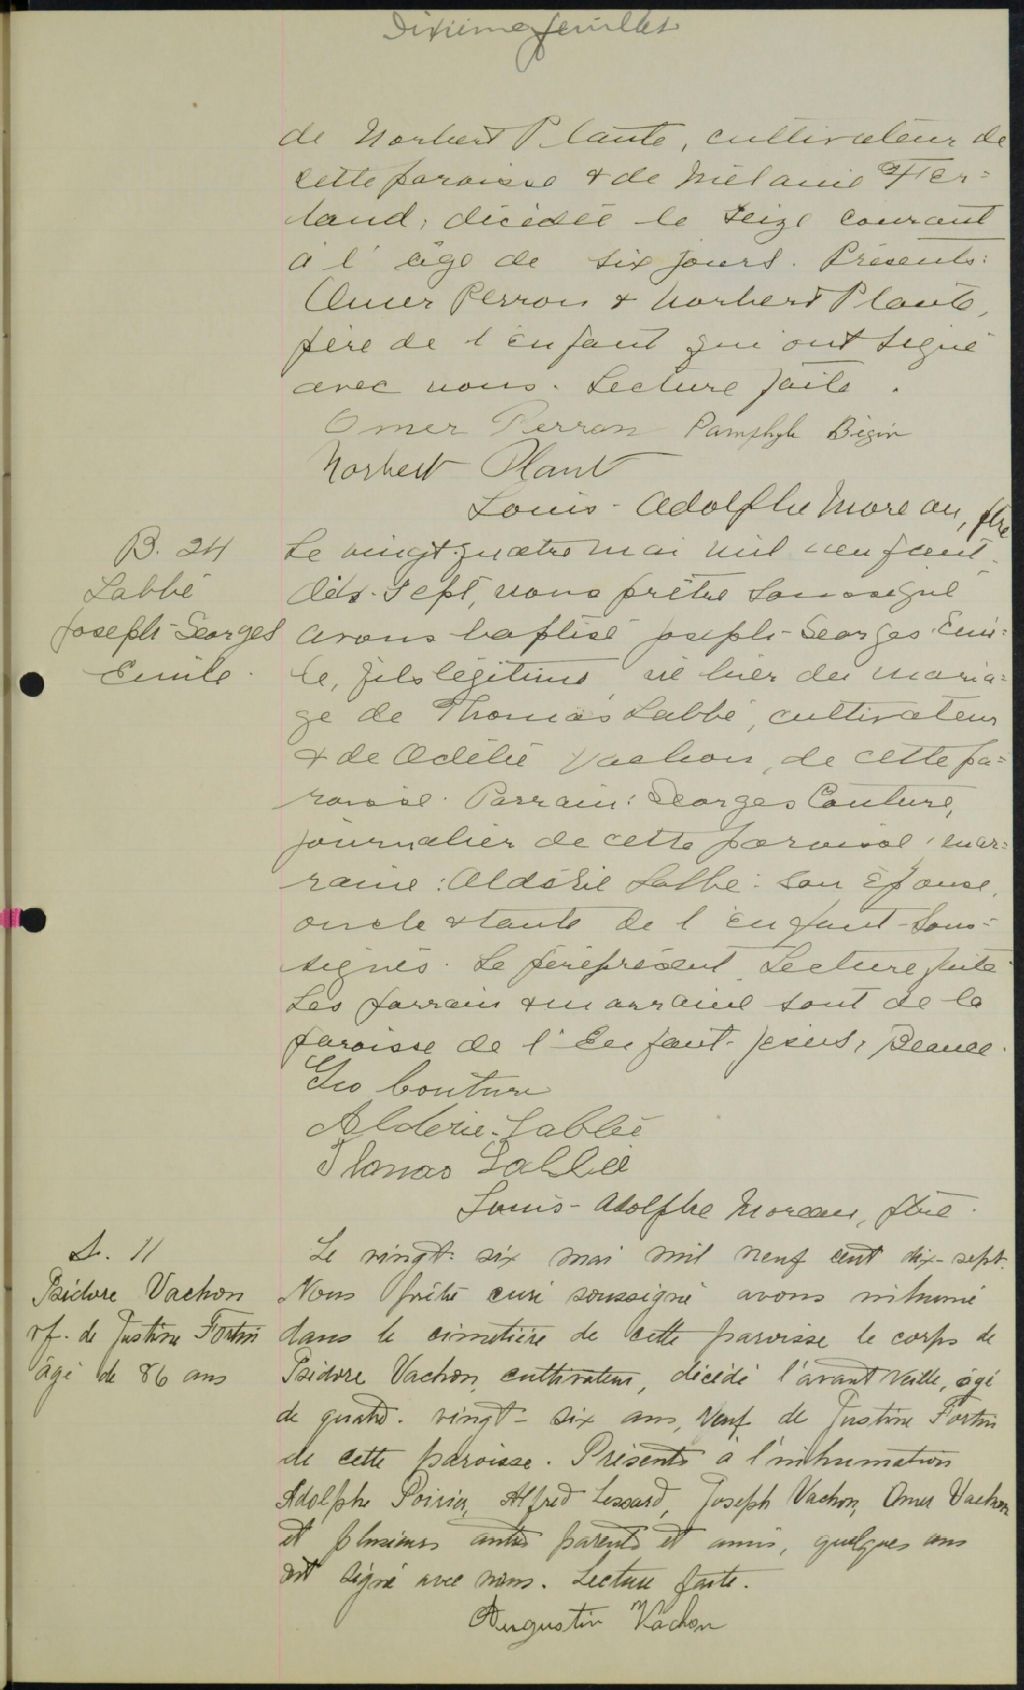 Dixième feuillet
de Norbert Plante, cultivateur de
cette paroisse & de Mélanie Fer=
land, décédée le seize courant
à l'âge de six jours. Présents:
Omer Perron & Norbert Plante,
père de l'enfant qui ont signé
avec nous. Lecture faite.
Omer Perron Pamphyle Bégin
Norbert Plant
Louis-Adolphe Moreau, ptre
B. 24
Labbé
Joseph-Georges
Emile.
Le vingt-quatre mai mil neuf cent
dix-sept, nous prêtre soussigné
avons baptisé Joseph-Georges-Emi=
le, fils légitime, né hier du maria=
ge de Thomas Labbé, cultivateur
& de Odélie Vachon, de cette pa=
roisse. Parrain: Georges Couture,
journalier de cette paroisse; mar=
raine: Aldérie Labbé: son épouse,
oncle & tante de l'enfant sous=
signés. Le père présent. Lecture faite.
Les parrain & marraine sont de la
paroisse de l'Enfant-Jésus, Beauce.
Geo Couture
Aldérie Labbée
Thomas Labbée
Louis-Adolphe Moreau, ptre.
S. 11
Isidore Vachon
vf. de Justine Fortin
âgé de 86 ans
Le vingt-six mai mil neuf cent dix-sept.
Nous prêtre curé soussigné avons inhumé
dans le cimetière de cette paroisse le corps de
Isidore Vachon, cultivateur, décédé l'avant veille, âgé
de quatre-vingt-six ans, veuf de Justine Fortin
de cette paroisse. Présents à l'inhumation
Adolphe Poirier, Alfred Lessard, Joseph Vachon, Omer Vachon
et plusieurs autres parents et amis, quelques uns
ont signé avec nous. Lecture faite.
Augustin Vachon